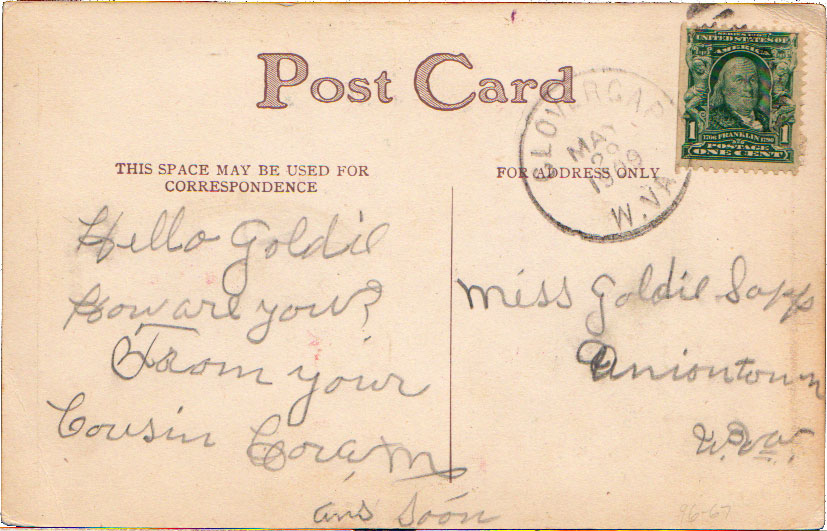 Post Card
THIS SPACE MAY BE USED FOR
CORRESPONDENCE
FOR ADDRESS ONLY
GLOVER GAP
MAY
1909
W. VA.
SERIES 1902
UNITED STATES OF
AMERICA
1706 FRANKLIN 1790
1 1
POSTAGE
ONE CENT
Hello Goldie
How are you?
From your
Cousin Cora, M
ans soon
Miss Goldie Sapp
Uniontown
W.Va.
96-67